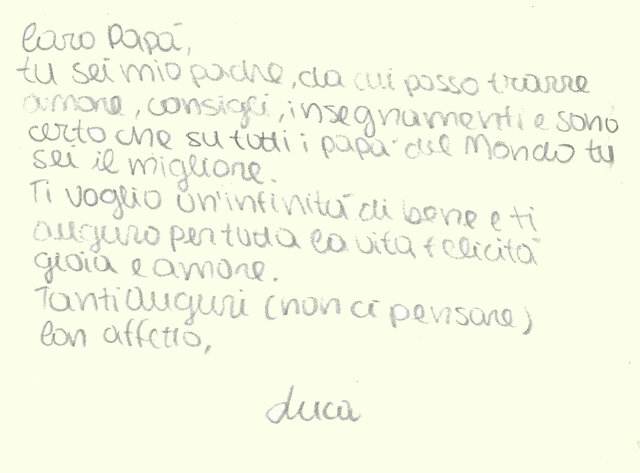 Caro Papà,
tu sei mio padre, da cui posso trarre
amore, consigli, insegnamenti e sono
certo che su tutti i papà del Mondo tu
sei il migliore.
Ti voglio un'infinità di bene e ti
auguro per tutta la vita felicità
gioia e amore.
Tanti auguri (non ci pensare)
Con affetto,
Luca